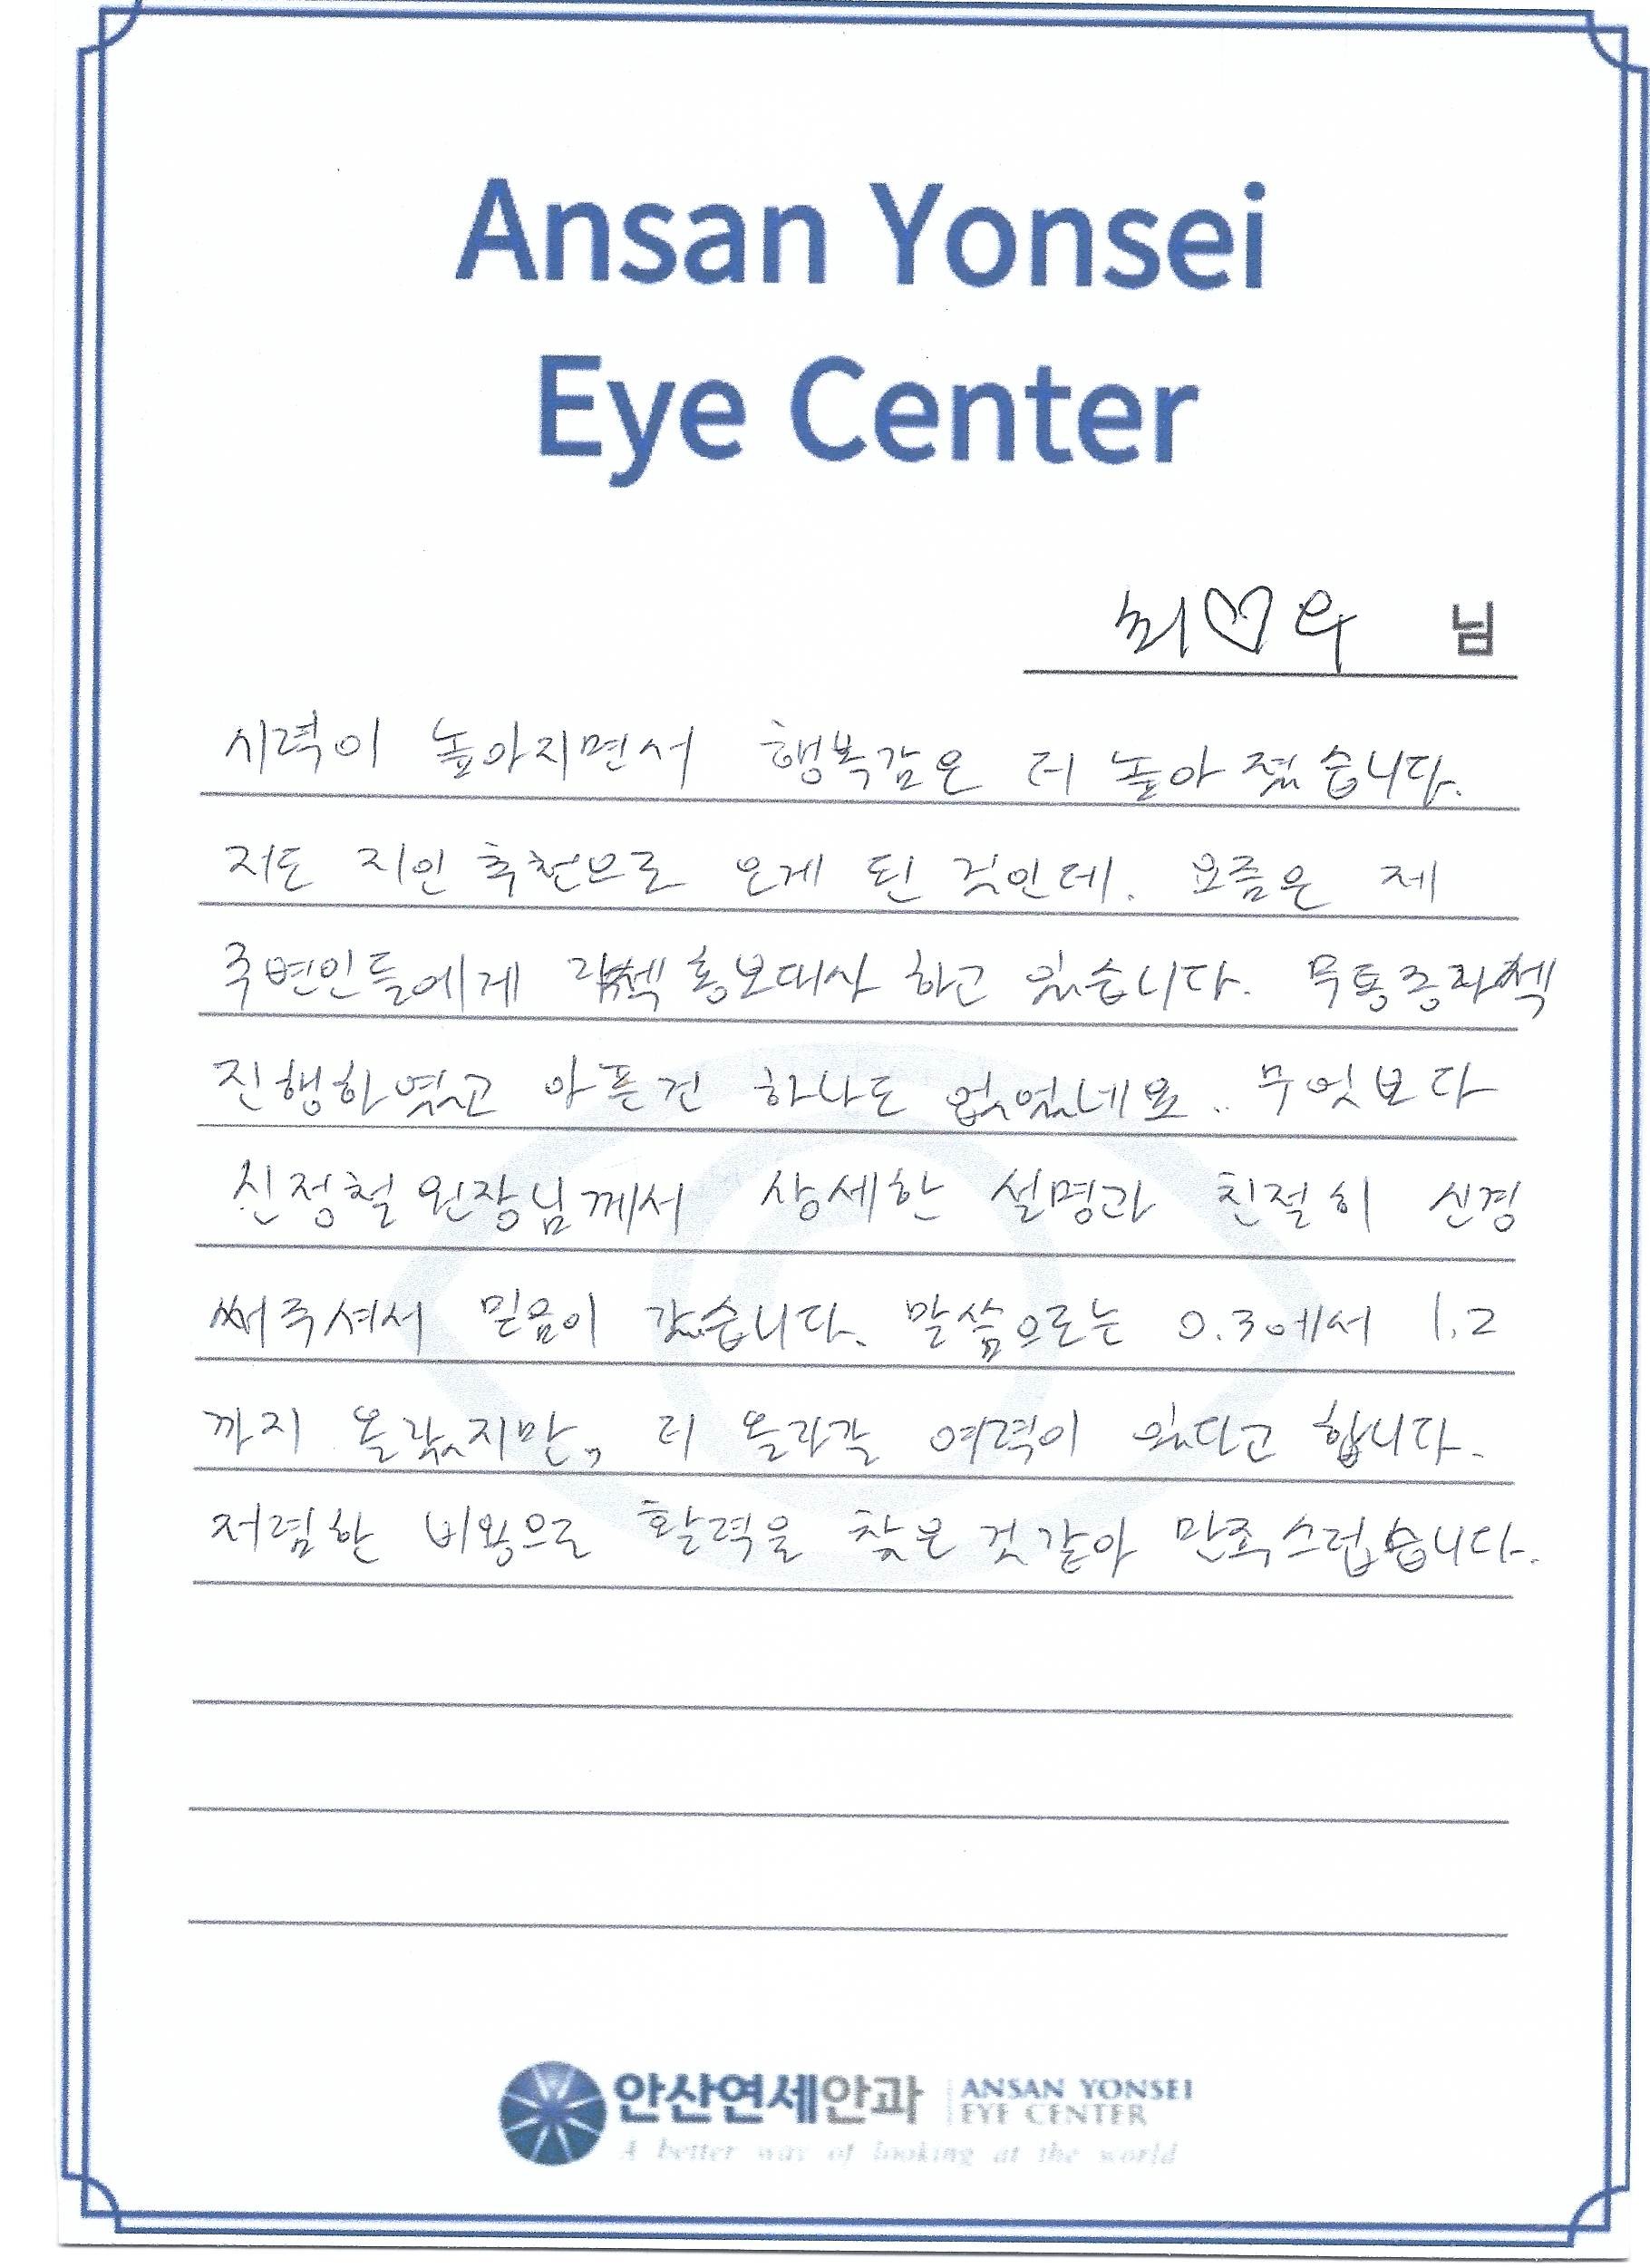 Ansan Yonsei
Eye Center
최♡우 님
시력이 높아지면서 행복감은 더 높아 졌습니다.
저도 지인 추천으로 오게 된 것인데. 요즘은 제
주변인들에게 라섹 홍보대사 하고 있습니다. 무통증라섹
진행하였고 아픈건 하나도 없었네요.. 무엇보다
신정철 원장님께서 상세한 설명과 친절히 신경
써주셔서 믿음이 갔습니다. 말씀으로는 0.3에서 1.2
까지 올랐지만, 더 올라갈 여력이 있다고 합니다.
저렴한 비용으로 활력을 찾은 것 같아 만족스럽습니다.
안산연세안과 ANSAN YONSEI
EYE CENTER
A better way of looking at the world